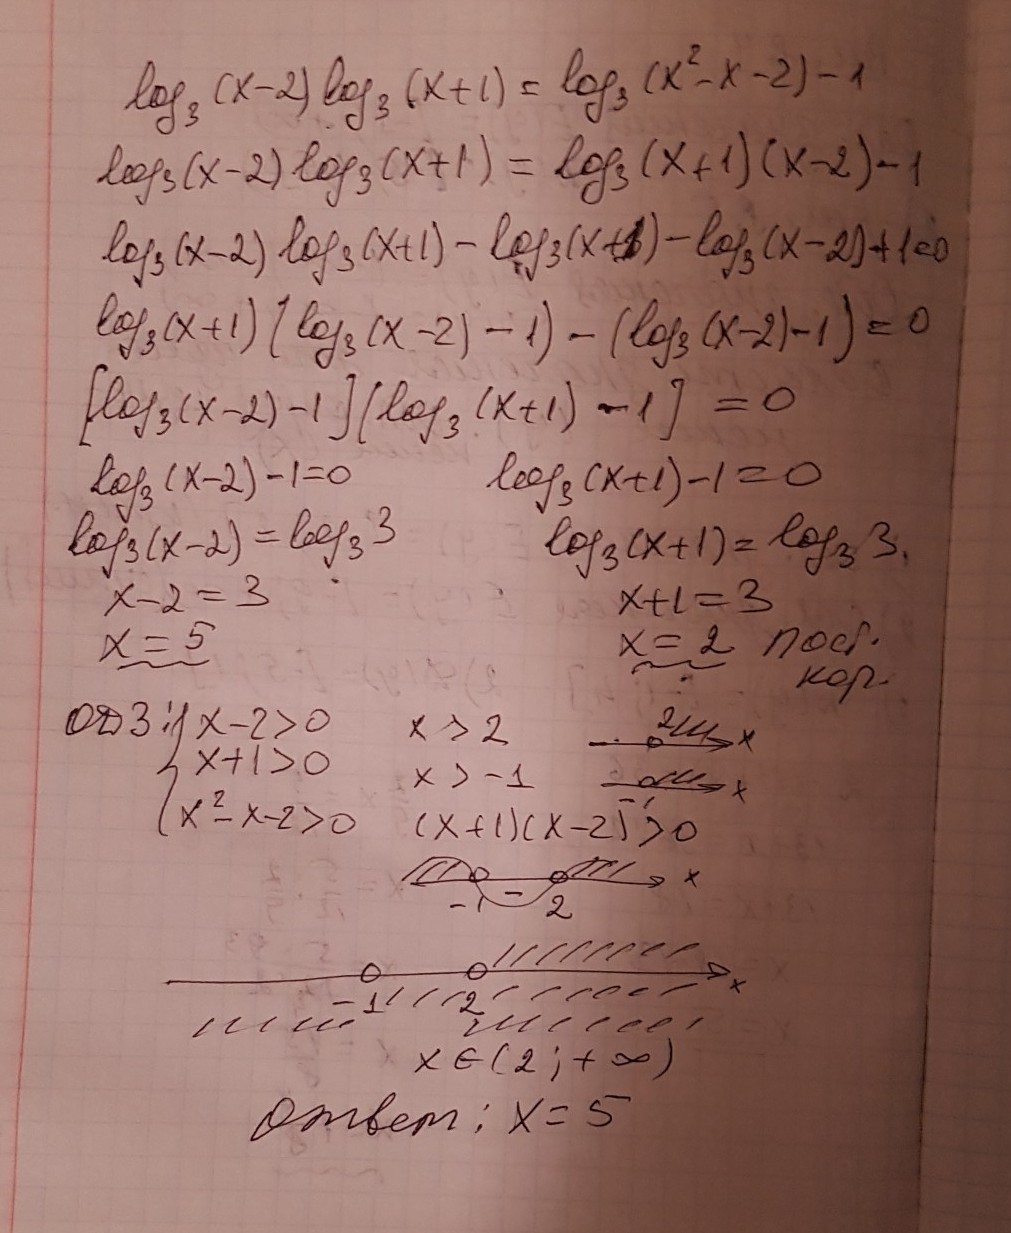 log₃(x-2) log₃(x+1) = log₃(x²-x-2)-1
log₃(x-2) log₃(x+1) = log₃(x+1)(x-2)-1
log₃(x-2) log₃(x+1) - log₃(x+1) - log₃(x-2)+1=0
log₃(x+1)(log₃(x-2)-1)-(log₃(x-2)-1)=0
[log₃(x-2)-1][log₃(x+1)-1]=0
log₃(x-2)-1=0 log₃(x+1)-1=0
log₃(x-2)=log₃3 log₃(x+1)=log₃3.
x-2=3 x+1=3
x=5 x=2 пост.
кор.
ОДЗ: { x-2>0 x>2 2 x
x+1>0 x>-1 -1 x
x²-x-2>0 (x+1)(x-2)>0
-1 - 2 x
-1 2 x
x∈(2;+∞)
Ответ: x=5